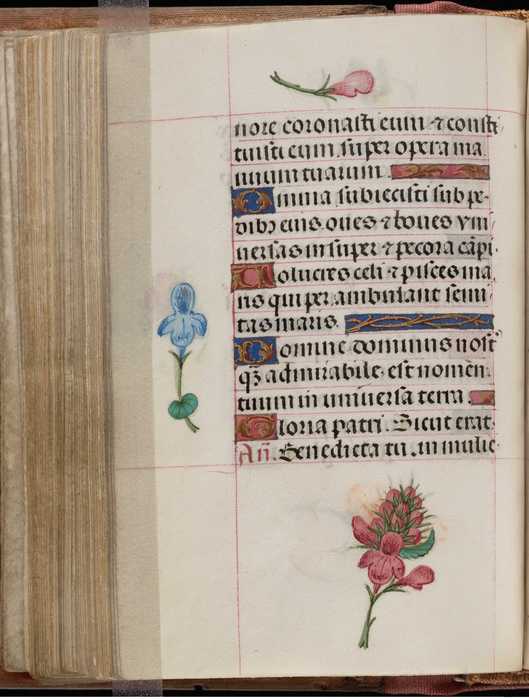 nore coronasti eum ⁊ consti
tuisti eum super opera ma
nuum tuarum
Omnia subiecisti sub pe-
dibꝫ eius oues ⁊ boues vni
uersas insuper ⁊ pecora cāpi.
Volucres celi ⁊ pisces ma
ris qui perambulant semi
tas maris.
Domine dominus nost̄
qꝫ admirabile est nomen
tuum in uniuersa terra.
Gloria patri. Sicut erat.
An̄. Benedicta tu. in mulie